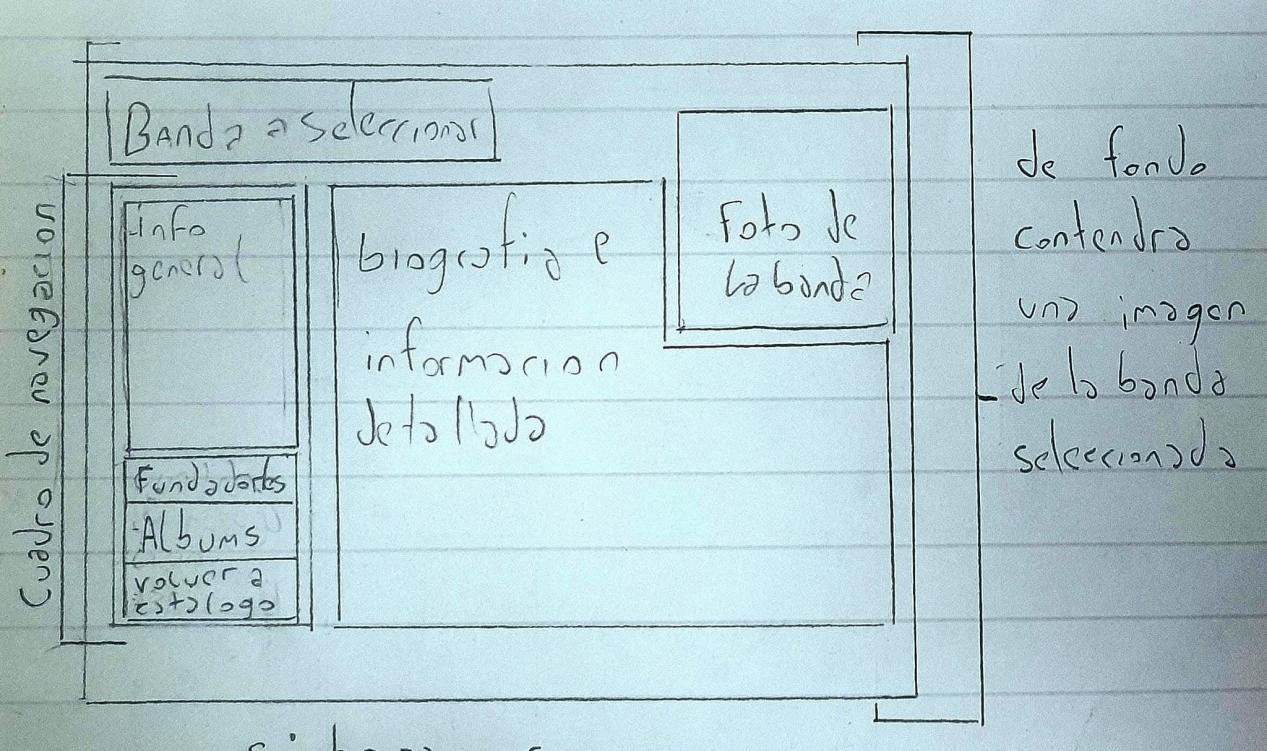 Banda a seleccionar
Cuadro de navegacion
info
general
Fundadores
Albums
volver a
catalogo
biografia e
informacion
detallada
Foto de
la banda
de fondo
contendra
una imagen
de la banda
seleccionada